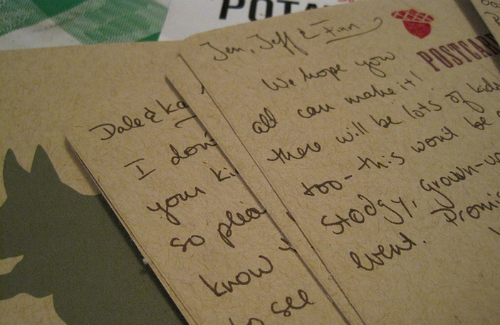 POTA
POSTCAR
Jen, Jeff & Finn
We hope you
all can make it!
there will be lots of kids
too - this wont be a
stodgy, grown-up
event. Promis
Dale & Ka
I don
your ki
so plea
know
to see